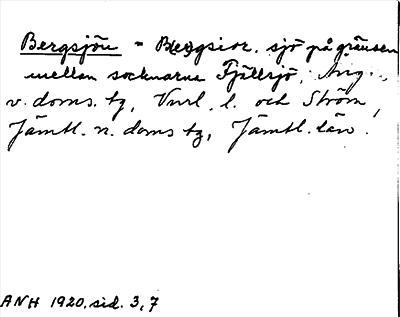 Bergsjön = B(e)rgsior. sjö på gränsen
mellan socknarna Fjällsjö, Ång.,
v. doms. tg, Vnrl. l. och Ström,
Jämtl. n. doms tg, Jämtl. län.
ANH 1920, sid. 3, 7